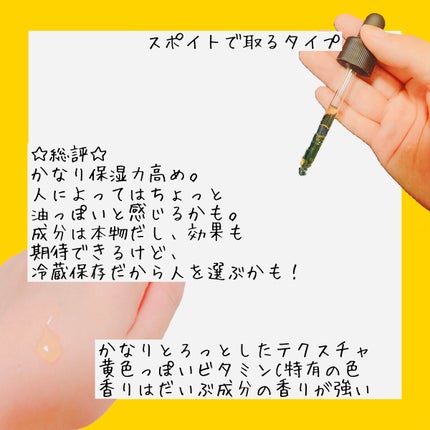 スポイトで取るタイプ
☆総評☆
かなり保湿力高め。
人によってはちょっと
油っぽいと感じるかも。
成分は本物だし、効果も
期待できるけど、
冷蔵保存だから人を選ぶかも！
かなりとろっとしたテクスチャ
黄色っぽいビタミンC特有の色
香りはだいぶ成分の香りが強い